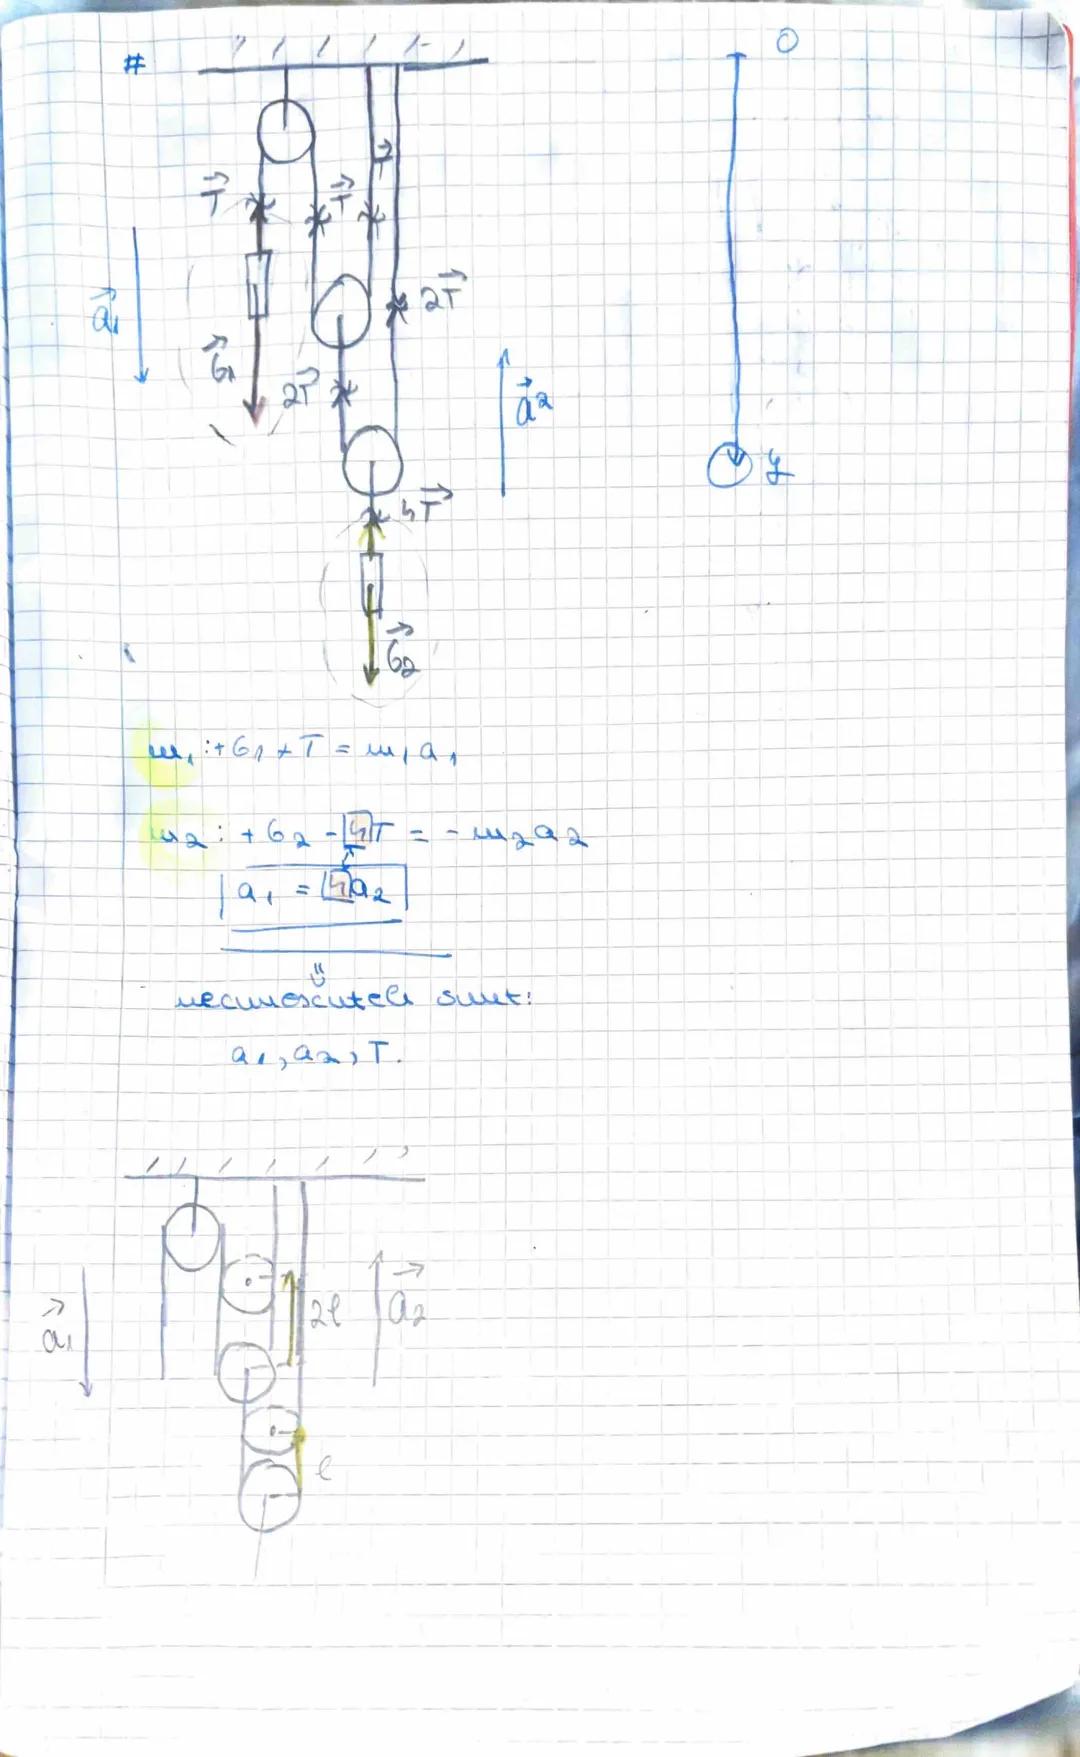 #
O
T
T
T
a₁
G₁
2T
2T
a2
y
4T
G₂
m₁: + G₁ + T = m₁a₁
m₂: + G₂ - 4T = - m₂a₂
a₁ = 4a₂
necunoscutele sunt:
a₁, a₂, T.
a₁
2l
a₂
l